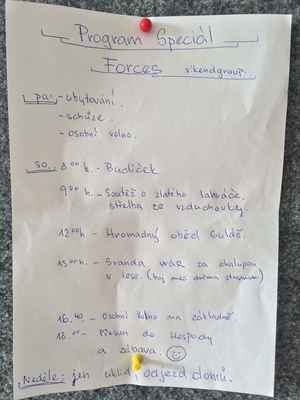 Program Speciál
Forces vikendgroup.
pá: - ubytování
- schůze
- osobní volno
so. 8⁰⁰ h. - Budíček
9⁰⁰ h. - Soutěž o zlatého
střelba ze vzduchovky.
12⁰⁰ h - Hromadný oběd
15⁰⁰ h. - Sranda wár za chalupou
v lese. (boj mezi dvěma)
16.40 - Osobní volno na základně
18.⁰⁰ - Přesun do Hospody
a zábava.
Neděle: jen úklid, odjezd domů.